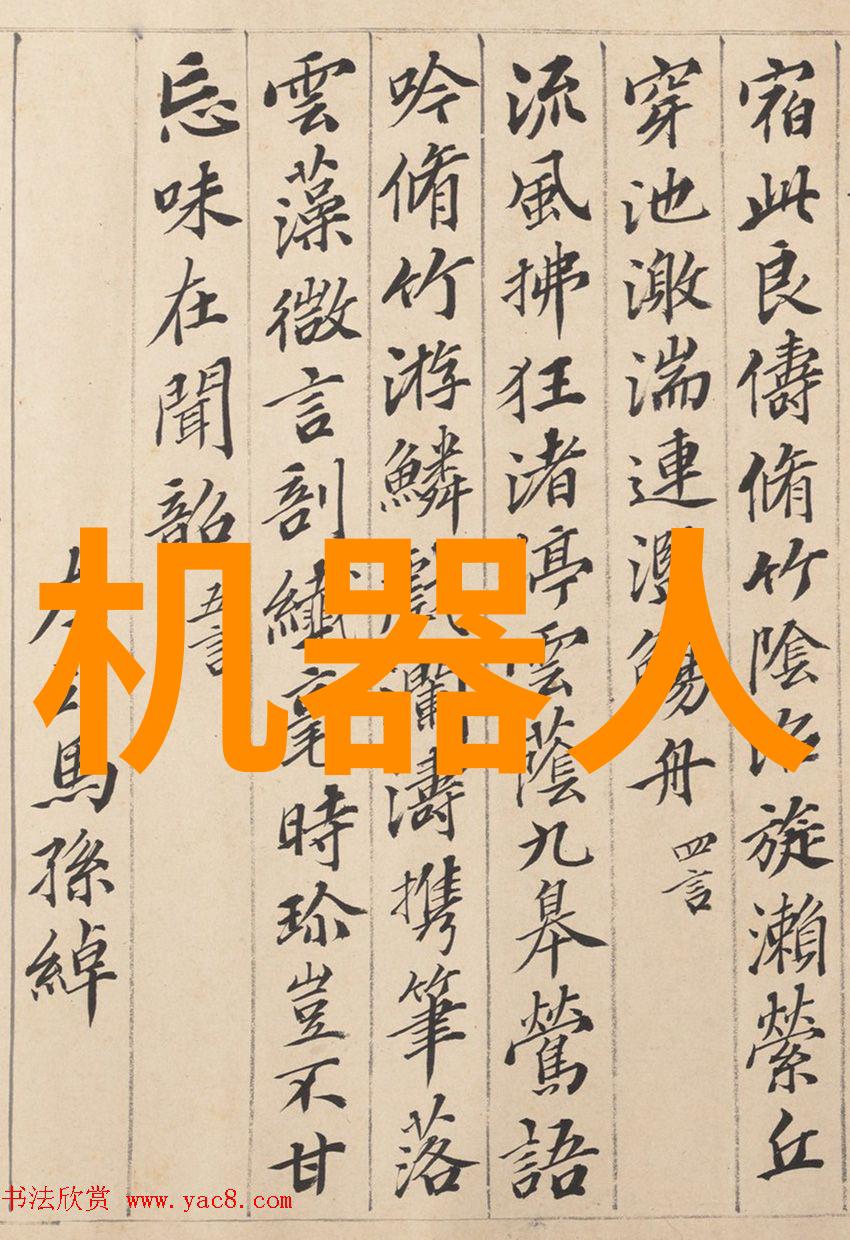 宿此良儔脩竹陰沼旋瀨縈丘
穿池激湍連觴舟 四言
流風拂狂渚停雲蔭九皋鶯語
吟脩竹游鱗戲瀾濤携筆落
雲藻微言剖纖毫時珎豈不甘
忘味在聞韶 五言
左馬孫綽
机器人
书法欣赏 www.yac8.com